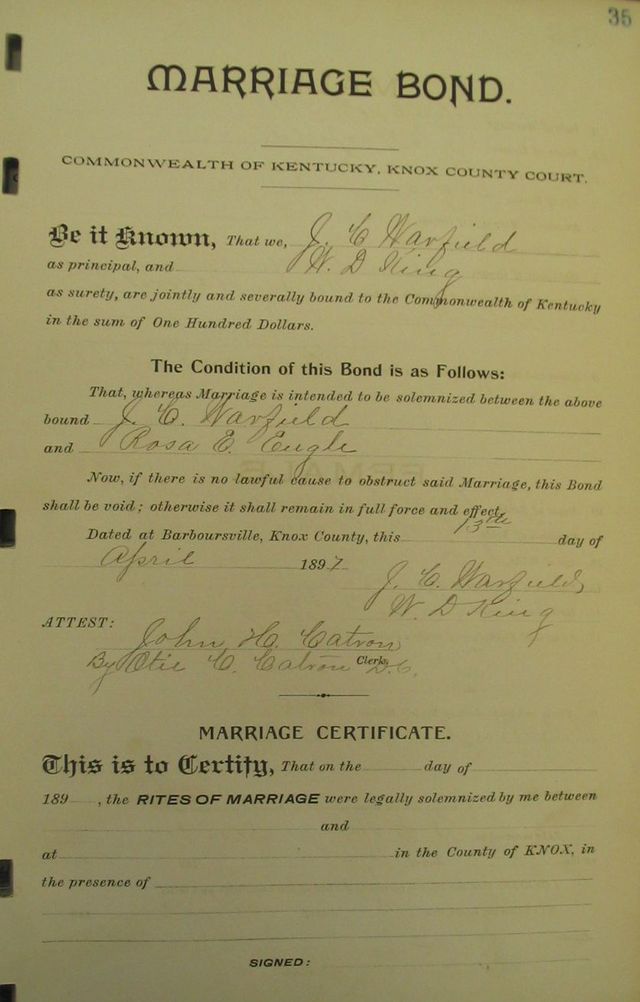 35
MARRIAGE BOND.
COMMONWEALTH OF KENTUCKY, KNOX COUNTY COURT.
Be it Known, That we, J. C Warfield
as principal, and W. D King
as surety, are jointly and severally bound to the Commonwealth of Kentucky
in the sum of One Hundred Dollars.
The Condition of this Bond is as Follows:
That, whereas Marriage is intended to be solemnized between the above
bound J. C. Warfield
and Rosa E. Engle
Now, if there is no lawful cause to obstruct said Marriage, this Bond
shall be void; otherwise it shall remain in full force and effect.
Dated at Barboursville, Knox County, this 13th day of
April 1897
J. C. Warfield
W. D King
ATTEST:
John H. Catron
By Otie C. Catron Clerk, D.C.
MARRIAGE CERTIFICATE.
This is to Certify, That on the day of
189 , the RITES OF MARRIAGE were legally solemnized by me between
and
at in the County of KNOX, in
the presence of
SIGNED: